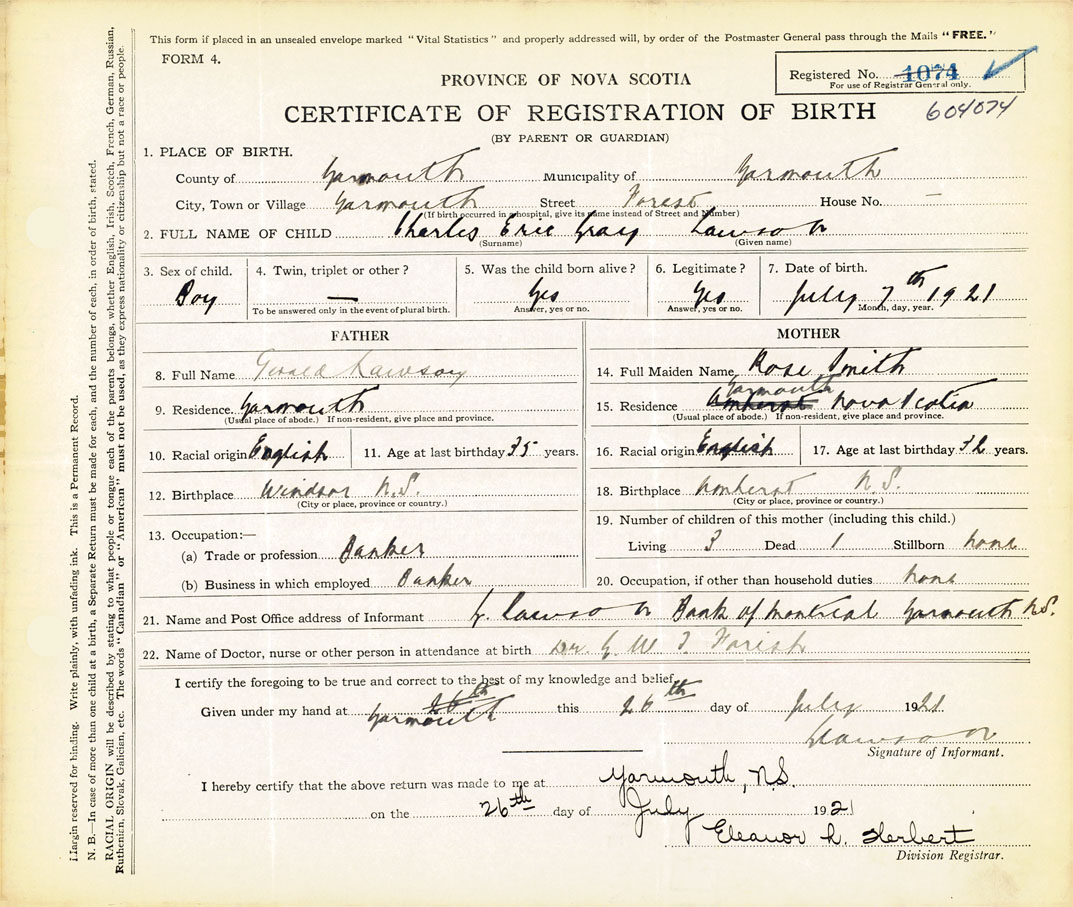 This form if placed in an unsealed envelope marked "Vital Statistics" and properly addressed will, by order of the Postmaster General pass through the Mails "FREE."
FORM 4.
Registered No. 1074
For use of Registrar General only.
PROVINCE OF NOVA SCOTIA
CERTIFICATE OF REGISTRATION OF BIRTH
604074
(BY PARENT OR GUARDIAN)
1. PLACE OF BIRTH.
County of Yarmouth Municipality of Yarmouth
City, Town or Village Yarmouth Street Forest House No. —
(If birth occurred in a hospital, give its name instead of Street and Number)
2. FULL NAME OF CHILD Charles Eric Gray Lawson
(Surname) (Given name)
3. Sex of child. 4. Twin, triplet or other? 5. Was the child born alive? 6. Legitimate? 7. Date of birth.
Boy — Yes Yes July 7th 1921
To be answered only in the event of plural birth. Answer, yes or no. Answer, yes or no. Month, day, year.
FATHER
8. Full Name Gerald Lawson
9. Residence Yarmouth
(Usual place of abode.) If non-resident, give place and province.
10. Racial origin English 11. Age at last birthday 35 years.
12. Birthplace Windsor N.S.
(City or place, province or country.)
13. Occupation:—
(a) Trade or profession Banker
(b) Business in which employed Banker
MOTHER
14. Full Maiden Name Rose Smith
Yarmouth
15. Residence Amherst Nova Scotia
(Usual place of abode.) If non-resident, give place and province.
16. Racial origin English 17. Age at last birthday 32 years.
18. Birthplace Amherst N.S.
(City or place, province or country.)
19. Number of children of this mother (including this child.)
Living 3 Dead 1 Stillborn none
20. Occupation, if other than household duties none
21. Name and Post Office address of Informant G. Lawson Bank of Montreal Yarmouth N.S.
22. Name of Doctor, nurse or other person in attendance at birth Dr. G. W. T. Farish
I certify the foregoing to be true and correct to the best of my knowledge and belief.
26th
Given under my hand at Yarmouth this 26th day of July 1921
Lawson
Signature of Informant.
I hereby certify that the above return was made to me at Yarmouth, N.S.
on the 26th day of July 1921
Eleanor L. Herbert
Division Registrar.
Margin reserved for binding. Write plainly, with unfading ink. This is a Permanent Record.
N. B.—In case of more than one child at a birth, a Separate Return must be made for each, and the number of each, in order of birth, stated.
RACIAL ORIGIN will be described by stating to what people or tongue each of the parents belongs, whether English, Irish, Scotch, French, German, Russian,
Ruthenian, Slovak, Galician, etc. The words "Canadian" or "American" must not be used, as they express nationality or citizenship but not a race or people.